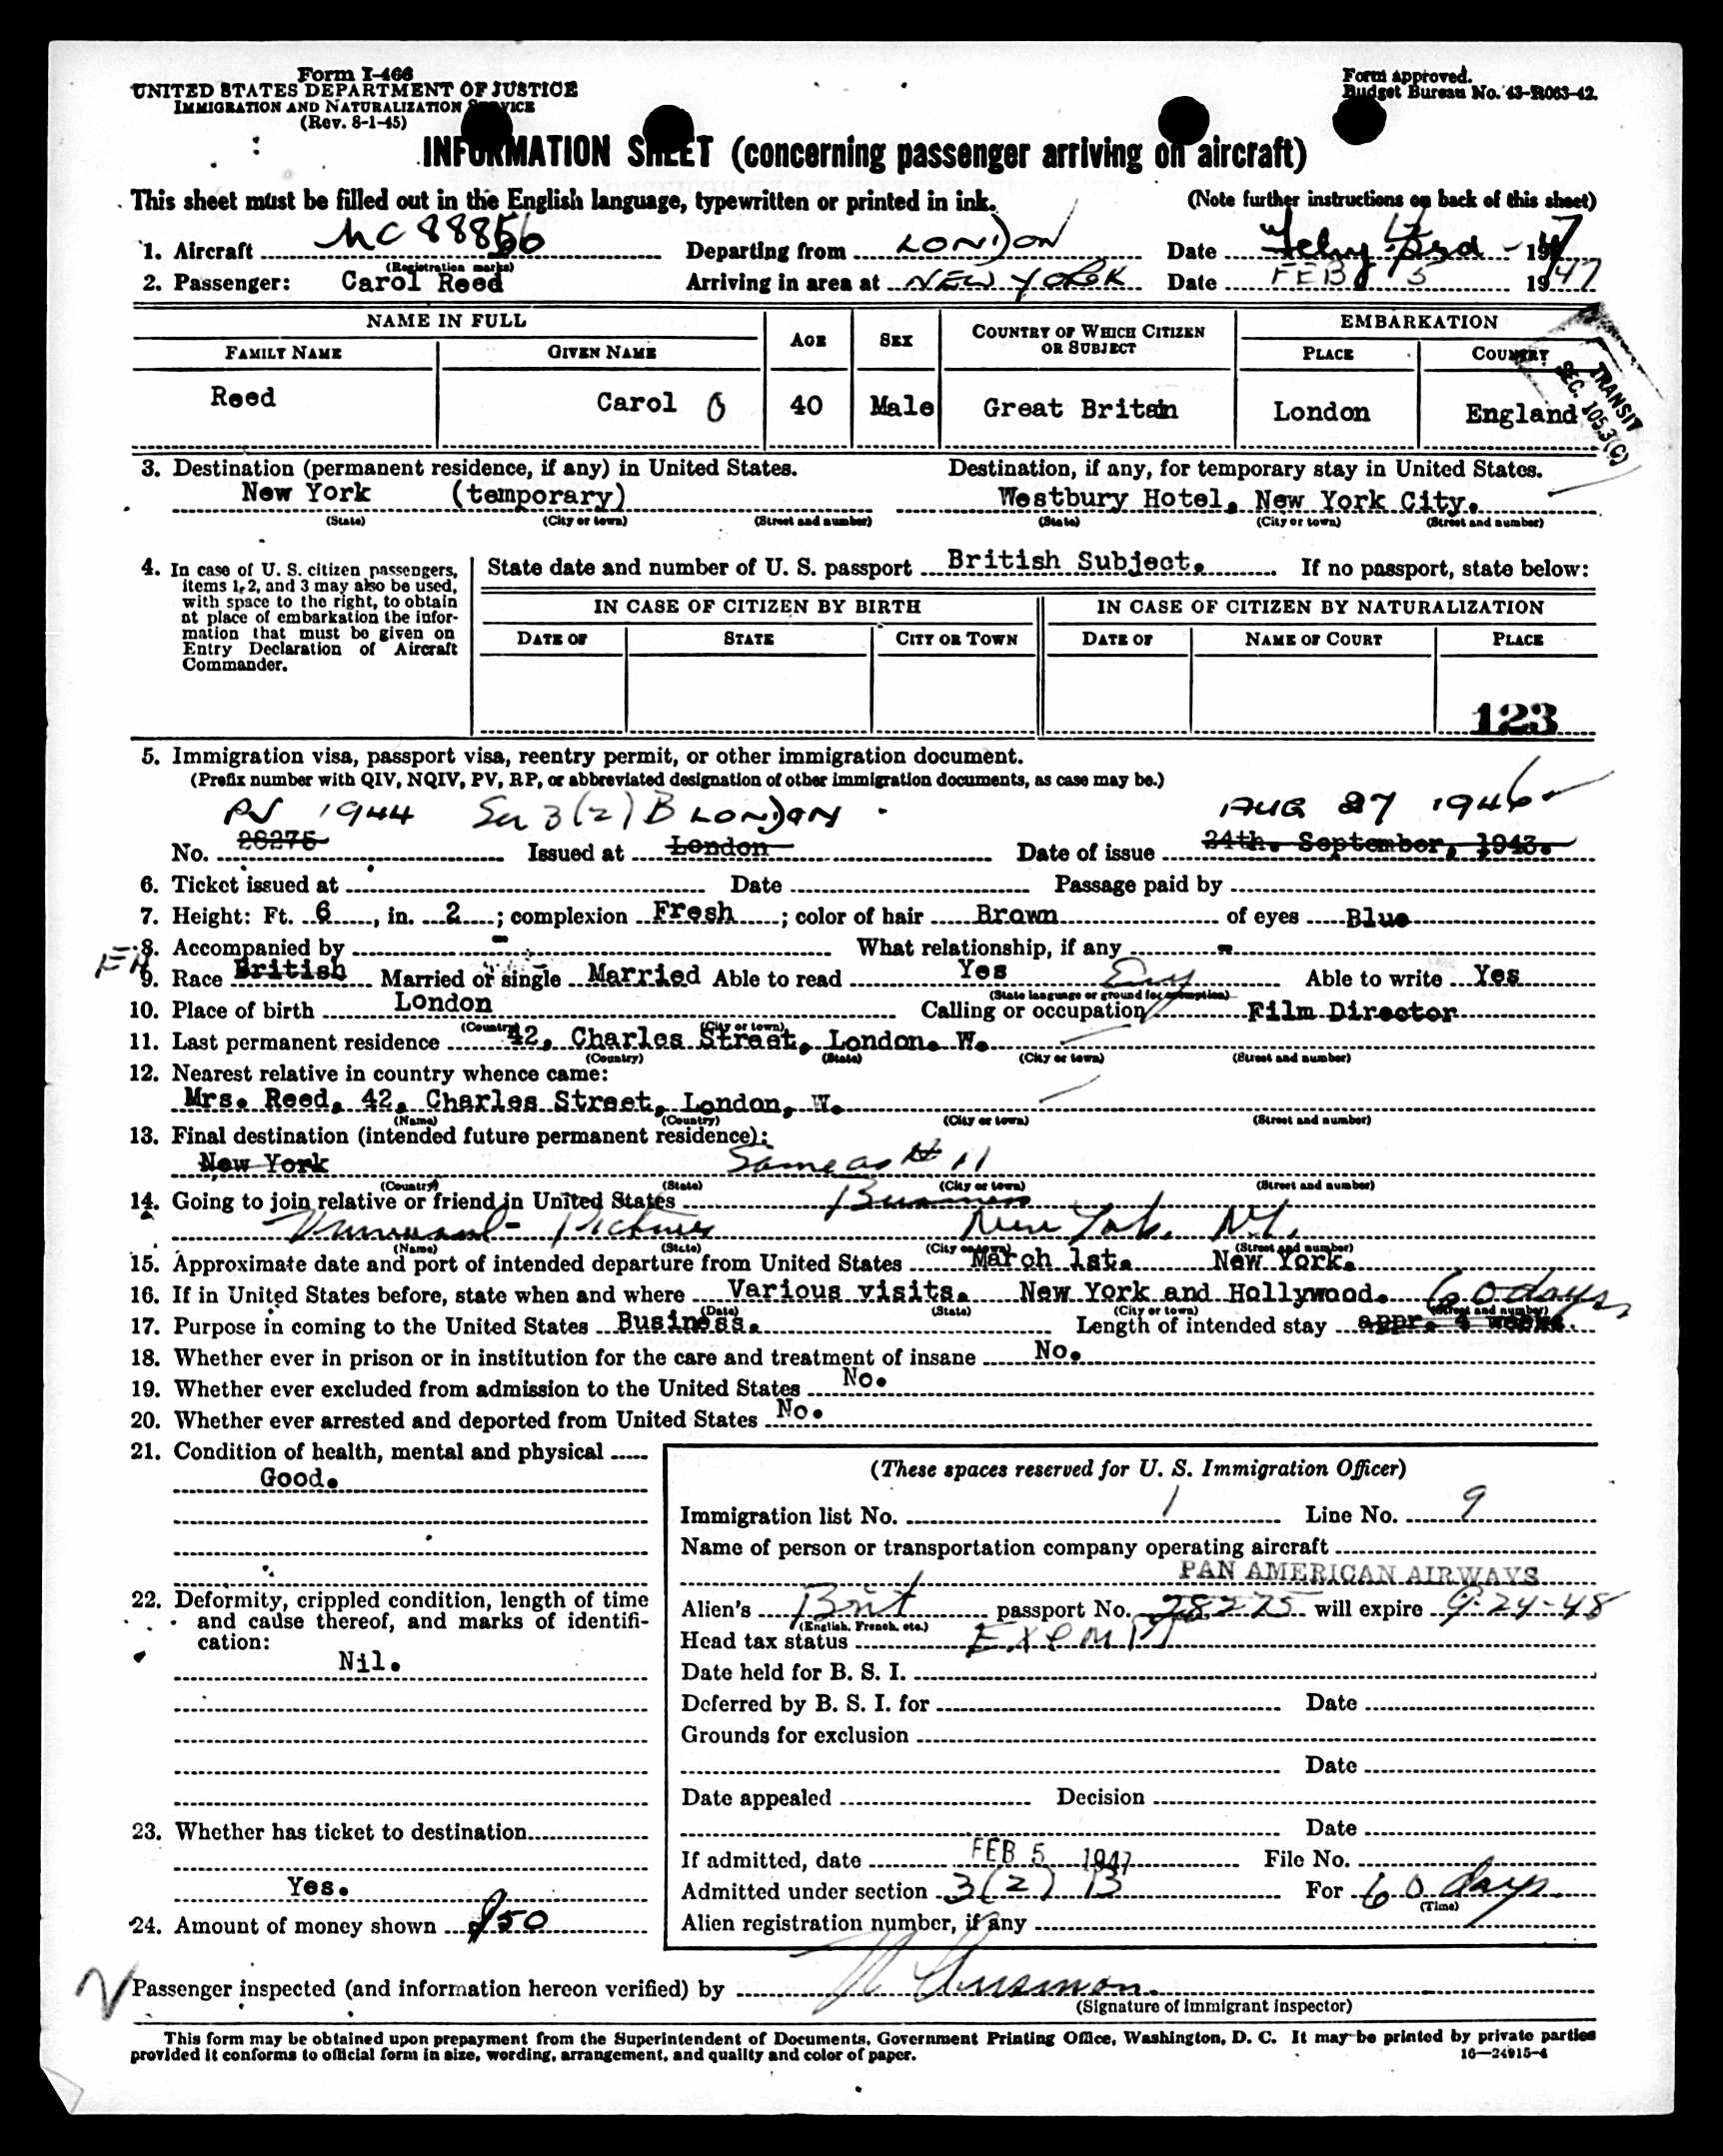 Form I-466
UNITED STATES DEPARTMENT OF JUSTICE
IMMIGRATION AND NATURALIZATION SERVICE
(Rev. 8-1-45)
Form approved.
Budget Bureau No. 43-R063-42.
INFORMATION SHEET (concerning passenger arriving on aircraft)
This sheet must be filled out in the English language, typewritten or printed in ink. (Note further instructions on back of this sheet)
1. Aircraft NC 88856 Departing from LONDON Date Feby 1947
(Registration marks)
2. Passenger: Carol Reed Arriving in area at NEW YORK Date FEB 5 1947
NAME IN FULL AGE SEX COUNTRY OF WHICH CITIZEN OR SUBJECT EMBARKATION
FAMILY NAME GIVEN NAME PLACE COUNTRY
Reed Carol 40 Male Great Britain London England
TRANSIT
SEC. 105.3(C)
3. Destination (permanent residence, if any) in United States. Destination, if any, for temporary stay in United States.
New York (temporary) Westbury Hotel, New York City.
(State) (City or town) (Street and number) (State) (City or town) (Street and number)
4. In case of U. S. citizen passengers, items 1, 2, and 3 may also be used, with space to the right, to obtain at place of embarkation the information that must be given on Entry Declaration of Aircraft Commander.
State date and number of U. S. passport British Subject. If no passport, state below:
IN CASE OF CITIZEN BY BIRTH IN CASE OF CITIZEN BY NATURALIZATION
DATE OF STATE CITY OR TOWN DATE OF NAME OF COURT PLACE
123
5. Immigration visa, passport visa, reentry permit, or other immigration document.
(Prefix number with QIV, NQIV, PV, RP, or abbreviated designation of other immigration documents, as case may be.)
PV 1944 Sec 3(2)B LONDON AUG 27 1946
No. 28275 Issued at London Date of issue 24th. September, 1943.
6. Ticket issued at Date Passage paid by
7. Height: Ft. 6, in. 2; complexion Fresh; color of hair Brown of eyes Blue
8. Accompanied by - What relationship, if any -
9. Race British Married or single Married Able to read Yes Eng Able to write Yes
(State language or ground for exemption)
10. Place of birth London Calling or occupation Film Director
(Country) (City or town)
11. Last permanent residence 42, Charles Street, London. W.
(Country) (State) (City or town) (Street and number)
12. Nearest relative in country whence came:
Mrs. Reed, 42, Charles Street, London, W.
(Name) (Country) (City or town) (Street and number)
13. Final destination (intended future permanent residence):
New York Same as # 11
(Country) (State) (City or town) (Street and number)
14. Going to join relative or friend in United States Business
Universal- Pictures New York, N.Y.
(Name) (State) (City or town) (Street and number)
15. Approximate date and port of intended departure from United States March 1st. New York.
16. If in United States before, state when and where Various visits. New York and Hollywood.
(Date) (State) (City or town) (Street and number)
60 days
17. Purpose in coming to the United States Business. Length of intended stay appr. 4 weeks.
18. Whether ever in prison or in institution for the care and treatment of insane No.
19. Whether ever excluded from admission to the United States No.
20. Whether ever arrested and deported from United States No.
21. Condition of health, mental and physical
Good.
22. Deformity, crippled condition, length of time and cause thereof, and marks of identification:
Nil.
23. Whether has ticket to destination
Yes.
24. Amount of money shown $50
(These spaces reserved for U. S. Immigration Officer)
Immigration list No. 1 Line No. 9
Name of person or transportation company operating aircraft
PAN AMERICAN AIRWAYS
Alien's Brit passport No. 28275 will expire 9-24-48
(English, French, etc.)
Head tax status EXEMPT
Date held for B. S. I.
Deferred by B. S. I. for Date
Grounds for exclusion
Date
Date appealed Decision
Date
If admitted, date FEB 5 1947 File No.
Admitted under section 3(2) B For 60 days
(Time)
Alien registration number, if any
Passenger inspected (and information hereon verified) by
(Signature of immigrant inspector)
This form may be obtained upon prepayment from the Superintendent of Documents, Government Printing Office, Washington, D. C. It may be printed by private parties
provided it conforms to official form in size, wording, arrangement, and quality and color of paper.
16—24915-4